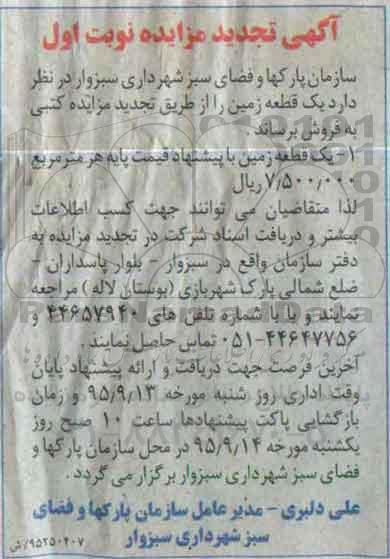 آگهی تجدید مزایده نوبت اول
سازمان پارکها و فضای سبز شهرداری سبزوار در نظر
دارد یک قطعه زمین را از طریق تجدید مزایده کتبی
به فروش برساند.
۱- یک قطعه زمین با پیشنهاد قیمت پایه هر متر مربع
۷٫۵۰۰٫۰۰۰ ریال
لذا متقاضیان می توانند جهت کسب اطلاعات
بیشتر و دریافت اسناد شرکت در تجدید مزایده به
دفتر سازمان واقع در سبزوار - بلوار پاسداران -
ضلع شمالی پارک شهربازی (بوستان لاله) مراجعه
نمایند و یا با شماره تلفن های ۴۴۶۵۷۹۴۰ و
۰۵۱-۴۴۶۴۷۷۵۶ تماس حاصل نمایند.
آخرین فرصت جهت دریافت و ارائه پیشنهاد پایان
وقت اداری روز شنبه مورخه ۹۵٫۹٫۱۳ و زمان
بازگشایی پاکت پیشنهادها ساعت ۱۰ صبح روز
یکشنبه مورخه ۹۵٫۹٫۱۴ در محل سازمان پارکها و
فضای سبز شهرداری سبزوار برگزار می گردد.
علی دلبری - مدیر عامل سازمان پارکها و فضای
سبز شهرداری سبزوار
۹۵۲۵۰۴۰۷/ش